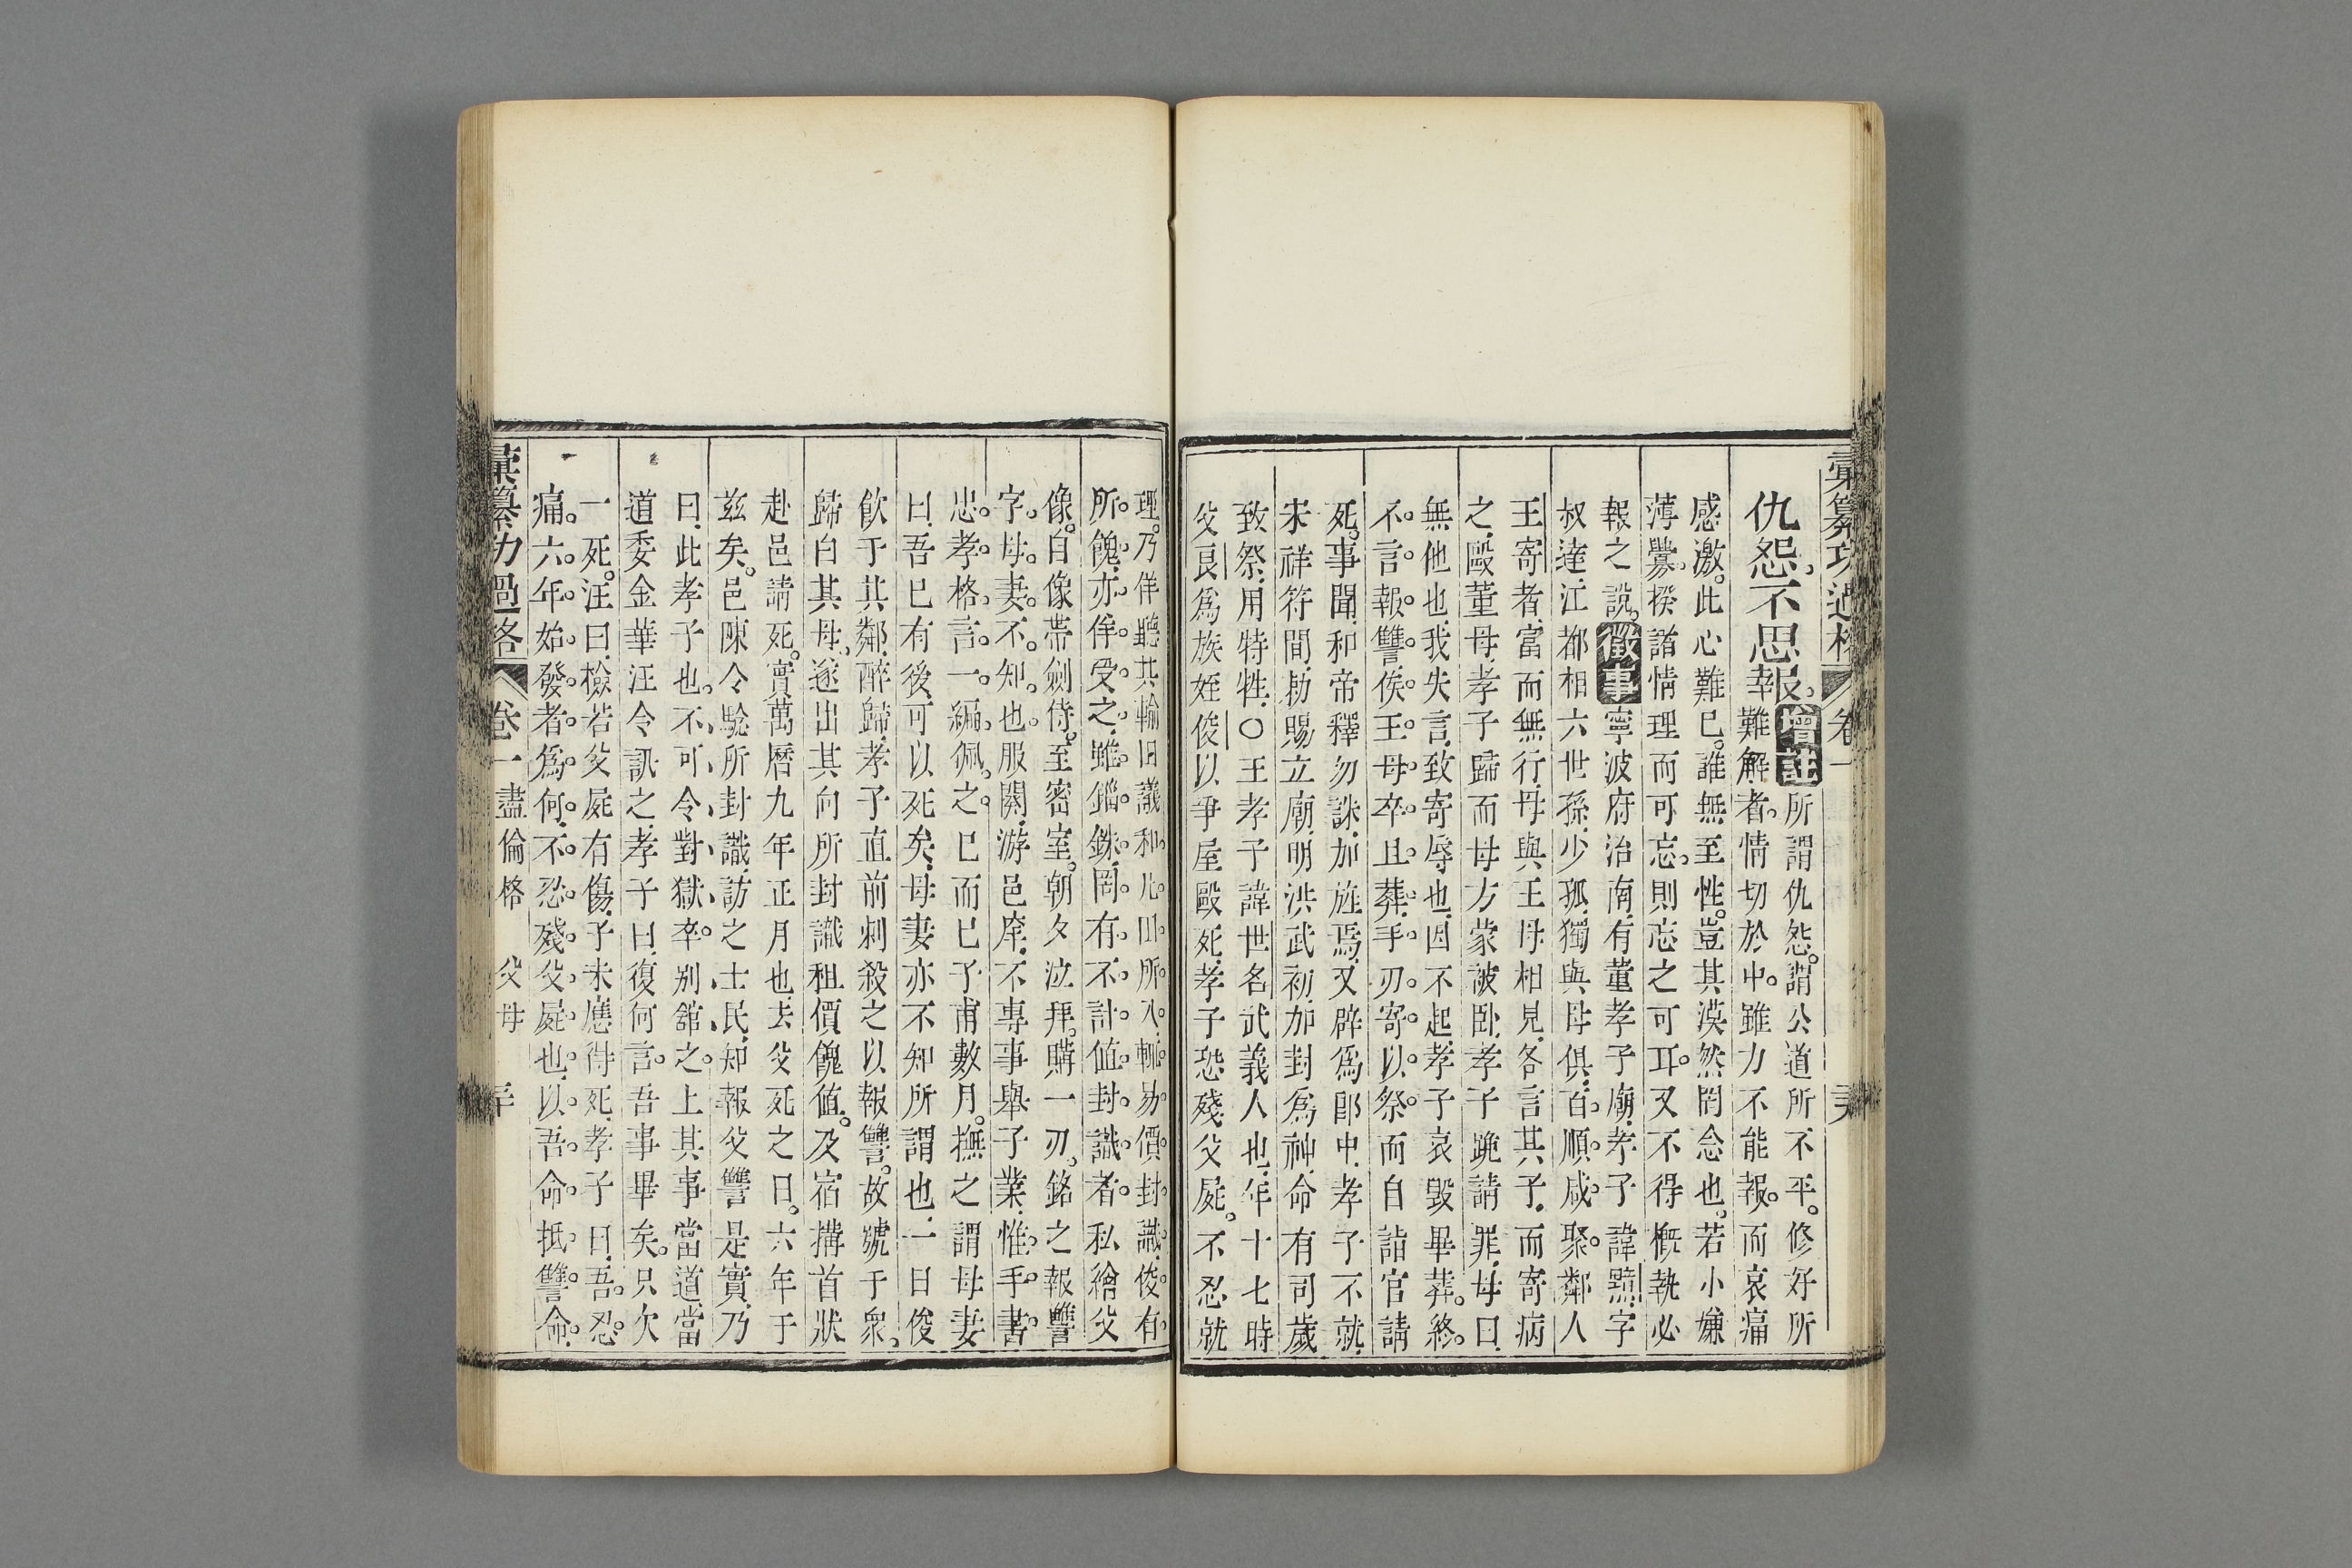 彙纂功過格 卷一
仇怨不思報。增註 所謂仇怨。謂公道所不平。修好所
難解者。情切於中。雖力不能報。而哀痛
感激。此心難已。誰無至性。豈其漠然罔念也。若小嫌
薄釁。揆諸情理而可忘。則忘之可耳。又不得槪執必
報之說。徵事 寧波府治南。有董孝子廟。孝子諱黯。字
叔達。江都相六世孫。少孤。獨與母俱。百順咸聚。鄰人
王寄者。富而無行。母與王母相見。各言其子。而寄病
之。毆董母。孝子歸而母方蒙被臥。孝子跪請罪。母曰。
無他也。我失言。致寄辱也。因不起。孝子哀毀畢葬。終
不言報讐。俟王母卒且葬。手刃寄。以祭。而自詣官請
死。事聞。和帝釋勿誅。加旌焉。又辟爲郎中。孝子不就。
宋祥符間。勅賜立廟。明洪武初。加封爲神。命有司歲
致祭。用特牲。○王孝子諱世名。武義人也。年十七時
父良爲族姪俊以爭屋毆死。孝子恐殘父屍。不忍就
理。乃佯聽其輸田議和。凡田所入。輒易價封識。俊有
所餽。亦佯受之。雖錙銖。罔有不計値封識者。私繪父
像。自像帶劍侍。至密室。朝夕泣拜。購一刃。銘之報讐
字。母妻不知也。服闋。游邑庠。不專事舉子業。惟手書
忠孝格言一編佩之已而已。子甫數月。撫之謂母妻
曰。吾已有後。可以死矣。母妻亦不知所謂也。一日俊
飮于其鄰。醉歸。孝子直前刺殺之。以報讐。故號于衆。
歸白其母。遂出其向所封識租價餽値。及宿搆首狀
赴邑請死。實萬曆九年正月也。去父死之日。六年于
茲矣。邑陳令騐所封識。訪之士民。知報父讐是實。乃
曰。此孝子也。不可令對獄卒。別舘之。上其事當道。當
道委金華汪令訊之。孝子曰。復何言。吾事畢矣。只欠
一死。汪曰。檢若父屍有傷。子未應得死。孝子曰。吾忍
痛六年始發者爲何。不忍殘父屍也。以吾命抵讐命。
彙纂功過格 卷一 盡倫格 父母